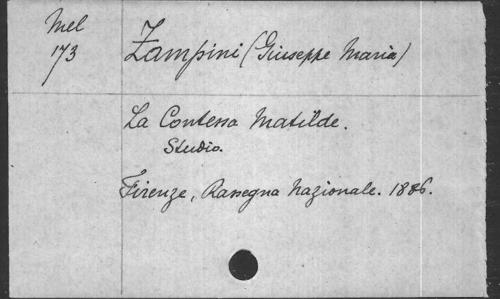 Mel
173
Zampini (Giuseppe Maria)
La Contessa Matilde.
Studio.
Firenze, Rassegna Nazionale. 1886.